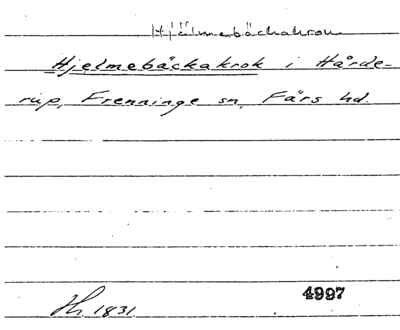 Hjälmabäckakrok
Hjelmebäckakrok i Hårde-
rup, Frenninge sn, Färs hd.
Hr. 1831. 4997